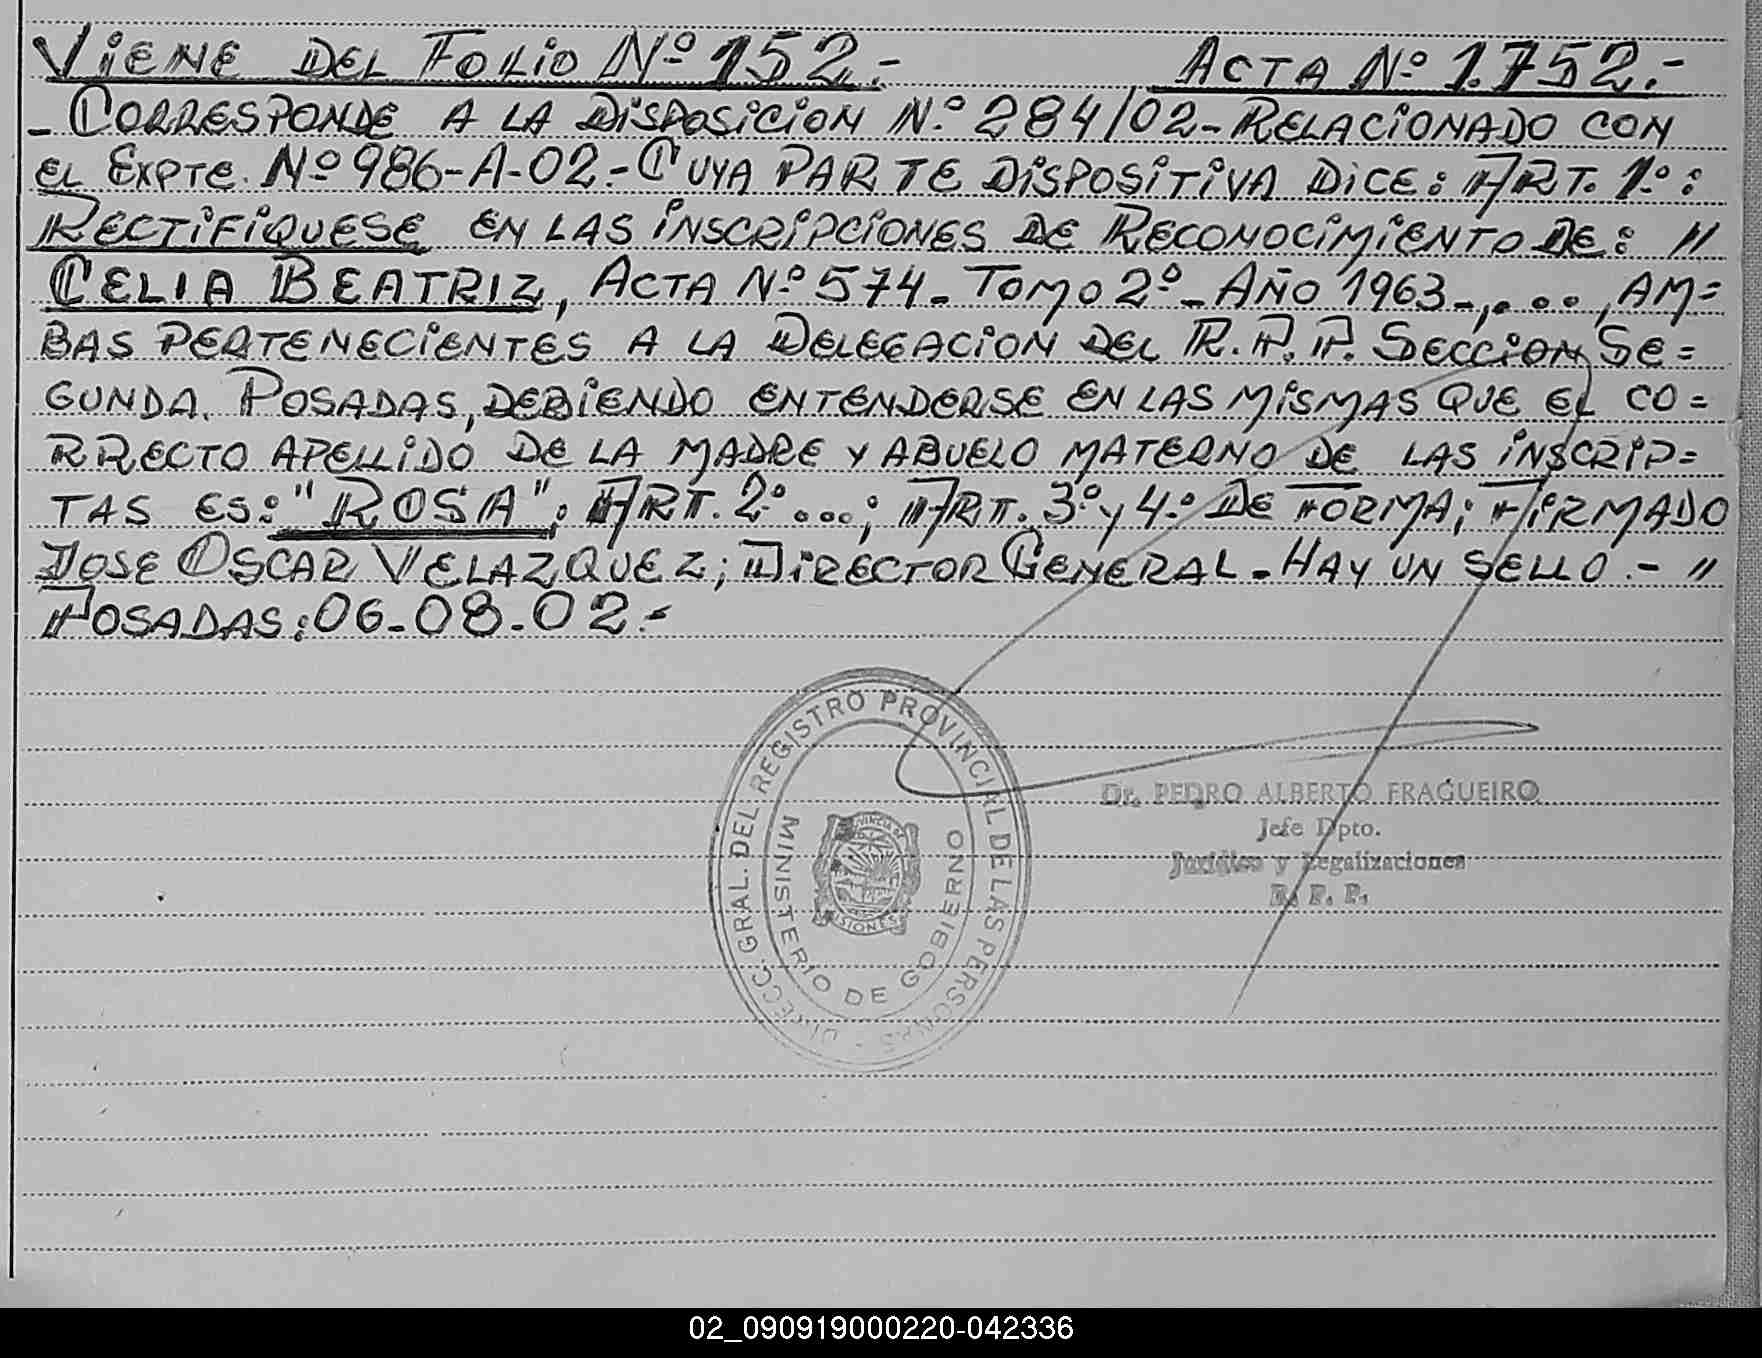 VIENE DEL FOLIO Nº 152.- ACTA Nº 1.752.-
- CORRESPONDE A LA DISPOSICION N.º 284/02- RELACIONADO CON
EL EXPTE. Nº 986-A-02.- CUYA PARTE DISPOSITIVA DICE: ART. 1.º:
RECTIFIQUESE EN LAS INSCRIPCIONES DE RECONOCIMIENTO DE: "
CELIA BEATRIZ, ACTA Nº 574- TOMO 2º- AÑO 1963-,...., AM=
BAS PERTENECIENTES A LA DELEGACION DEL R.P.P. SECCION SE=
GUNDA. POSADAS, DEBIENDO ENTENDERSE EN LAS MISMAS QUE EL CO=
RRECTO APELLIDO DE LA MADRE Y ABUELO MATERNO DE LAS INSCRIP=
TAS ES: "ROSA"; ART. 2º...; ART. 3º y 4.º DE FORMA; FIRMADO
JOSE OSCAR VELAZQUEZ; DIRECTOR GENERAL- HAY UN SELLO.- "
POSADAS: 06-08-02.-
DIRECC. GRAL. DEL REGISTRO PROVINCIAL DE LAS PERSONAS -
MINISTERIO DE GOBIERNO
PROVINCIA DE
MISIONES
Dr. PEDRO ALBERTO FRAGUEIRO
Jefe Dpto.
Jurídico y Legalizaciones
R. P. P.
02_090919000220-042336